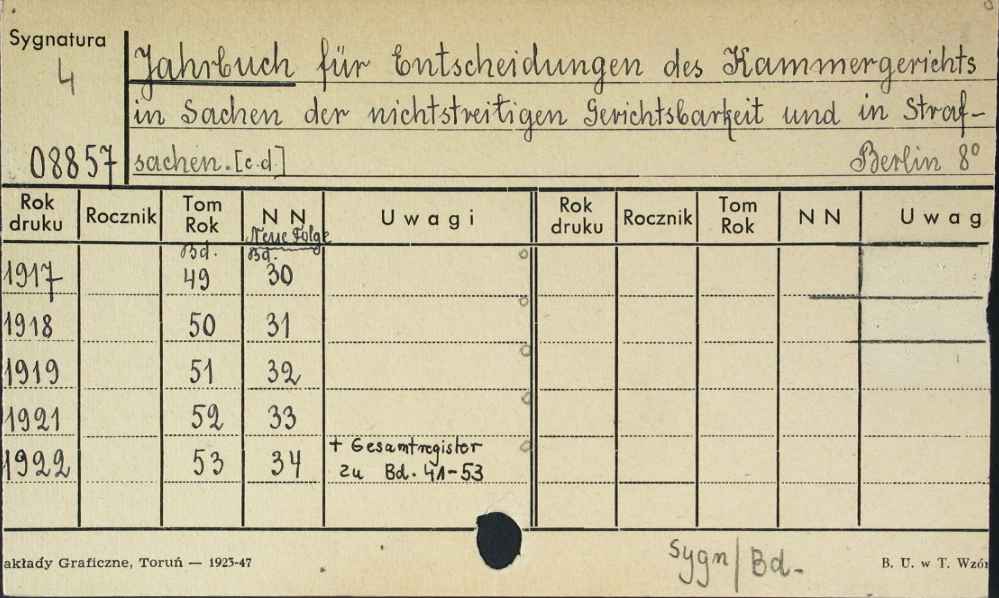 Sygnatura
4
08857
Jahrbuch für Entscheidungen des Kammergerichts
in Sachen der nichtstreitigen Gerichtsbarkeit und in Straf-
sachen. [c.d.] Berlin 8°
Rok druku Rocznik Tom Rok N N Uwagi Rok druku Rocznik Tom Rok N N Uwag
Neue Folge
Bd. Bd.
1917 49 30
1918 50 31
1919 51 32
1921 52 33
1922 53 34 + Gesamtregister
zu Bd. 41-53
akłady Graficzne, Toruń — 1923-47
Sygn/Bd-
B. U. w T. Wzór